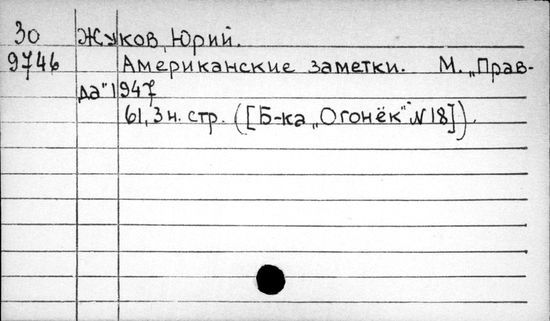 30 Жуков, Юрий.
9746 Американские заметки. М. „Прав-
да" 1947
61, 3 н. стр. ([Б-ка „Огонёк" N 18]).